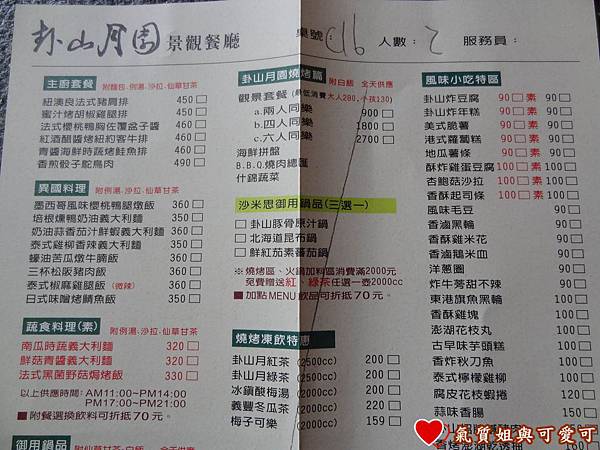 卦山月園 景觀餐廳
桌號: C16 人數: 2 服務員:
主廚套餐 附麵包.例湯.沙拉.仙草甘茶
紐澳良法式豬肩排 450
蜜汁烤胡椒雞腿排 450
法式櫻桃鴨胸佐覆盆子醬 460
紅酒醋醬烤紐約客牛排 460
青醬海鮮時蔬烤鮭魚排 460
香煎骰子鴕鳥肉 490
異國料理 附例湯.沙拉.仙草甘茶
墨西哥風味櫻桃鴨腿燉飯 360
培根燻鴨奶油義大利麵 350
奶油蒜香茄汁鮮蝦義大利麵 360
泰式雞柳香辣義大利麵 350
蠔油苦瓜燉牛腩飯 350
三杯松阪豬肉飯 360
泰式椒麻雞腿飯 (微辣) 360
日式味噌烤鯖魚飯 350
蔬食料理(素) 附例湯.沙拉.仙草甘茶
南瓜時蔬義大利麵 320
鮮菇青醬義大利麵 320
法式黑菌野菇焗烤飯 330
以上供應時間: AM11:00~PM14:00
PM17:00~PM21:00
■附餐選換飲料可折抵70元。
御用鍋品
卦山月園燒烤篇 附白飯 全天供應
觀景套餐 (最低消費大人280,小孩130)
a.兩人同樂 900
b.四人同樂 1800
c.六人同樂 2700
海鮮拼盤
B.B.Q.燒肉總匯
什錦蔬菜
沙米思御用鍋品(三選一)
卦山豚骨原汁鍋
北海道昆布鍋
鮮紅茄素蕃茄鍋
※燒烤區、火鍋加料區消費滿2000元
免費贈送紅、綠茶任選一壺2000cc
■加點MENU飲品可折抵70元。
燒烤凍飲特惠
卦山月紅茶 (2500cc) 200
卦山月綠茶 (2500cc) 200
冰鎮酸梅湯 (2000cc) 220
義豐冬瓜茶 (2000cc) 220
梅子可樂 (2000cc) 220
風味小吃特區
卦山炸豆腐 90 素 90
卦山炸年糕 90 素 90
美式脆薯 90 素 90
港式蘿蔔糕 90 素 90
地瓜薯條 90 素 90
酥炸雞蛋豆腐 100 素 100
杏鮑菇沙拉 100 素 100
香酥起司條 100 素 100
風味毛豆 90
香滷黑輪 90
香酥雞米花 90
香滷鵝米血 90
洋蔥圈 90
炸牛蒡甜不辣 90
東港旗魚黑輪 100
香酥雞塊 100
澎湖花枝丸 100
古早味芋頭糕 100
香炸秋刀魚 100
泰式檸檬雞柳 100
腐皮花枝蝦捲 120
蒜味香腸 150
氣質姐與可愛可